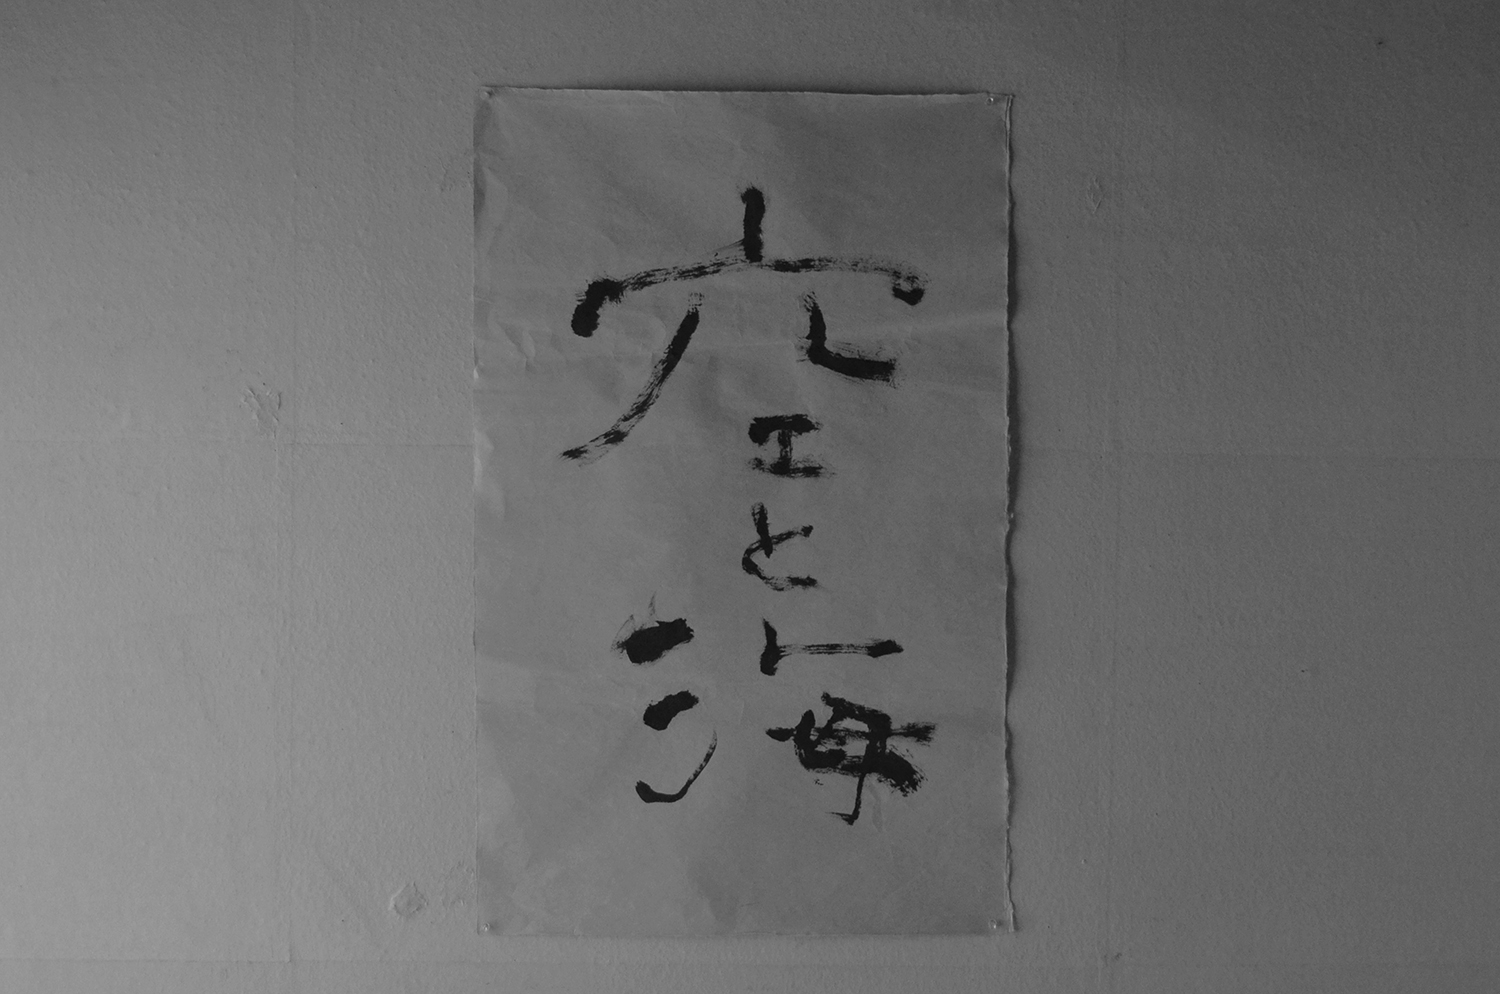 空と海